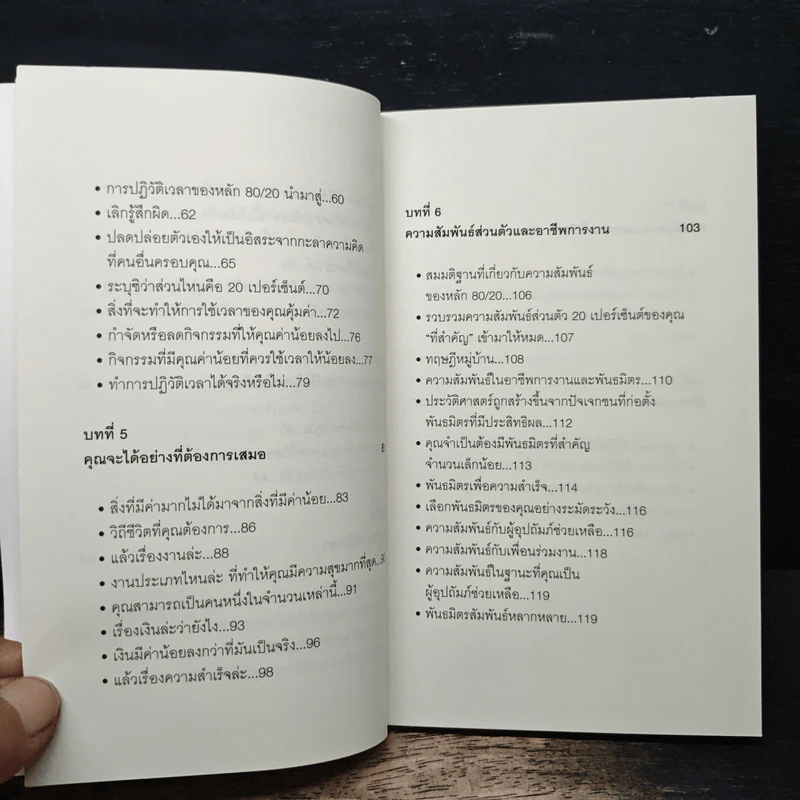 • การปฏิวัติเวลาของหลัก 80/20 นำมาสู่...60
• เลิกรู้สึกผิด...62
• ปลดปล่อยตัวเองให้เป็นอิสระจากกะลาความคิด
ที่คนอื่นครอบคุณ...65
• ระบุซิว่าส่วนไหนคือ 20 เปอร์เซ็นต์...70
• สิ่งที่จะทำให้การใช้เวลาของคุณคุ้มค่า...72
• กำจัดหรือลดกิจกรรมที่ให้คุณค่าน้อยลงไป...76
• กิจกรรมที่มีคุณค่าน้อยที่ควรใช้เวลาให้น้อยลง...77
• ทำการปฏิวัติเวลาได้จริงหรือไม่...79
บทที่ 5
คุณจะได้อย่างที่ต้องการเสมอ
• สิ่งที่มีค่ามากไม่ได้มาจากสิ่งที่มีค่าน้อย...83
• วิถีชีวิตที่คุณต้องการ...86
• แล้วเรื่องงานล่ะ...88
• งานประเภทไหนล่ะ ที่ทำให้คุณมีความสุขมากที่สุด...
• คุณสามารถเป็นคนหนึ่งในจำนวนเหล่านี้...91
• เรื่องเงินล่ะว่ายังไง...93
• เงินมีค่าน้อยลงกว่าที่มันเป็นจริง...96
• แล้วเรื่องความสำเร็จล่ะ...98
บทที่ 6
ความสัมพันธ์ส่วนตัวและอาชีพการงาน 103
• สมมติฐานที่เกี่ยวกับความสัมพันธ์
ของหลัก 80/20...106
• รวบรวมความสัมพันธ์ส่วนตัว 20 เปอร์เซ็นต์ของคุณ
"ที่สำคัญ" เข้ามาให้หมด...107
• ทฤษฎีหมู่บ้าน...108
• ความสัมพันธ์ในอาชีพการงานและพันธมิตร...110
• ประวัติศาสตร์ถูกสร้างขึ้นจากปัจเจกชนที่ก่อตั้ง
พันธมิตรที่มีประสิทธิผล...112
• คุณจำเป็นต้องมีพันธมิตรที่สำคัญ
จำนวนเล็กน้อย...113
• พันธมิตรเพื่อความสำเร็จ...114
• เลือกพันธมิตรของคุณอย่างระมัดระวัง...116
• ความสัมพันธ์กับผู้อุปถัมภ์ช่วยเหลือ...116
• ความสัมพันธ์กับเพื่อนร่วมงาน...118
• ความสัมพันธ์ในฐานะที่คุณเป็น
ผู้อุปถัมภ์ช่วยเหลือ...119
• พันธมิตรสัมพันธ์หลากหลาย...119